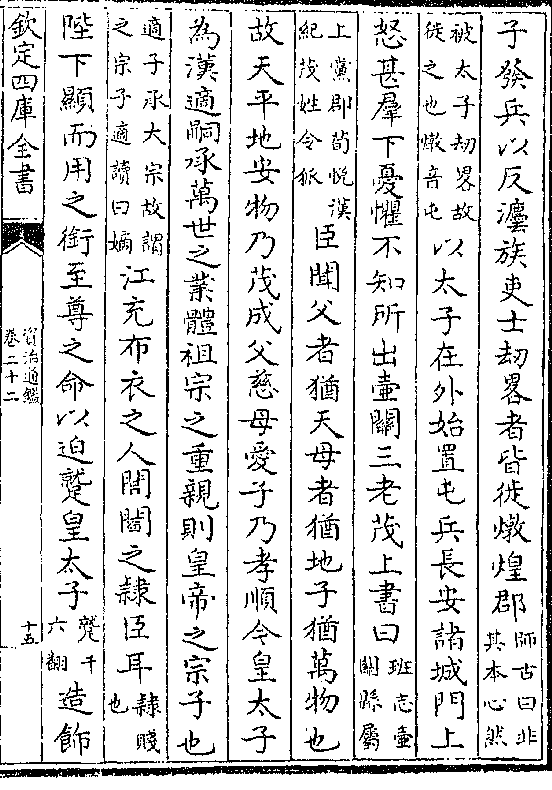 子發兵以反灋族吏士劫畧者皆徙燉煌郡師古曰非其本心然
被太子劫畧故徙之也燉音屯以太子在外始置屯兵長安諸城門上
怒甚羣下憂懼不知所出壷關三老茂上書曰班志壷關縣屬
上黨郡荀悦漢紀茂姓令狐臣聞父者猶天母者猶地子猶萬物也
故天平地安物乃茂成父慈母愛子乃孝順今皇太子
為漢適嗣承萬世之業體祖宗之重親則皇帝之宗子也
適子承大宗故謂之宗子適讀曰嫡江充布衣之人閭閻之隸臣耳隸賤也
陛下顯而用之銜至尊之命以迫蹵皇太子蹵千六翻造飾
欽定四庫全書
資治通鑑
卷二十二
十五